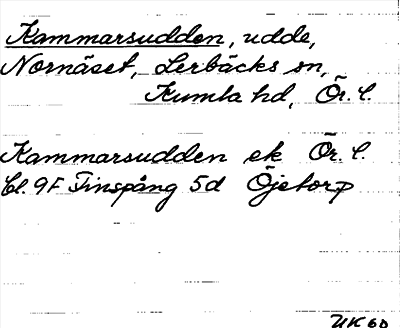 Kammarsudden, udde,
Nornäset, Lerbäcks sn,
Kumla hd, Ör. l.
Kammarsudden ek Ör. l.
Bl. 9F Finspång 5d Öjetorp
UK60